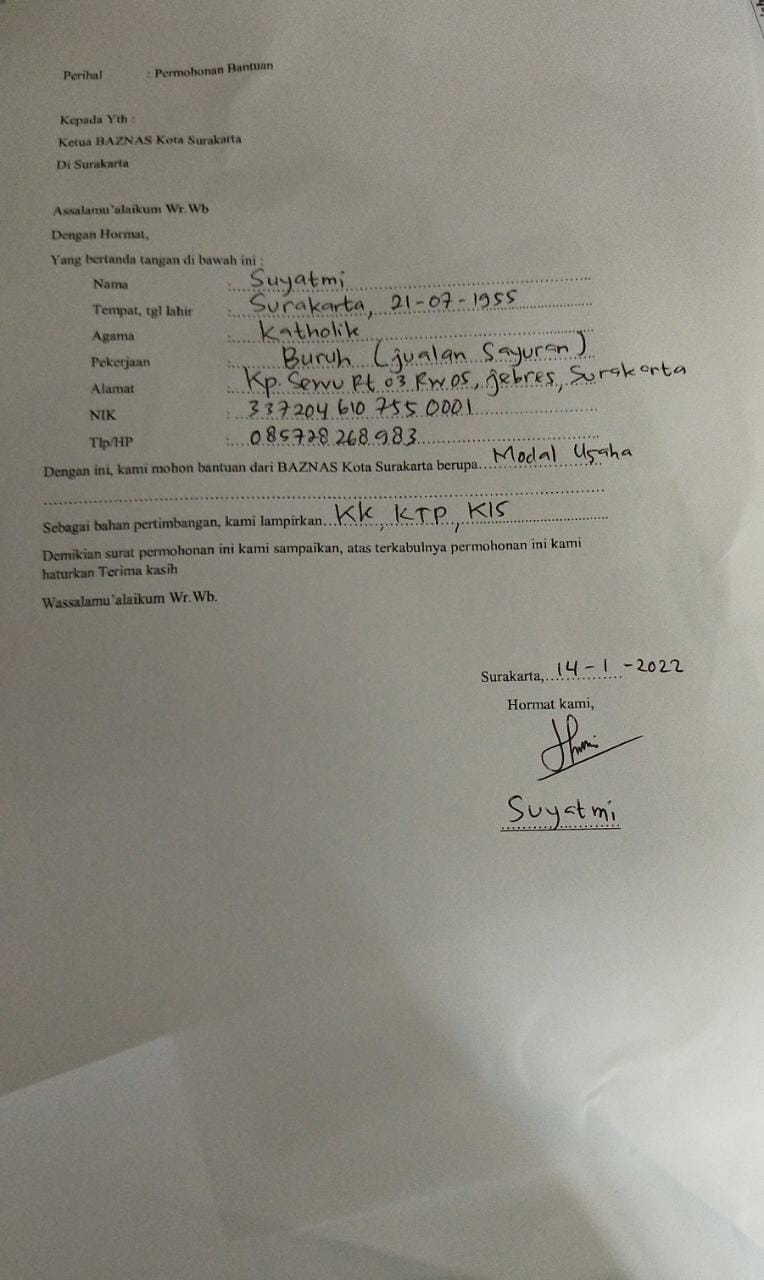 Perihal : Permohonan Bantuan
Kepada Yth :
Ketua BAZNAS Kota Surakarta
Di Surakarta
Assalamu'alaikum Wr.Wb
Dengan Hormat,
Yang bertanda tangan di bawah ini :
Nama : Suyatmi
Tempat, tgl lahir : Surakarta, 21-07-1955
Agama : Katholik
Pekerjaan : Buruh (jualan Sayuran)
Alamat : Kp. Sewu Rt 03 Rw 05, jebres, Surakarta
NIK : 337204 610 755 0001
Tlp/HP : 085728 268 983
Dengan ini, kami mohon bantuan dari BAZNAS Kota Surakarta berupa Modal Usaha
Sebagai bahan pertimbangan, kami lampirkan KK, KTP, KIS
Demikian surat permohonan ini kami sampaikan, atas terkabulnya permohonan ini kami
haturkan Terima kasih
Wassalamu'alaikum Wr.Wb.
Surakarta, 14-1-2022
Hormat kami,
Suyatmi